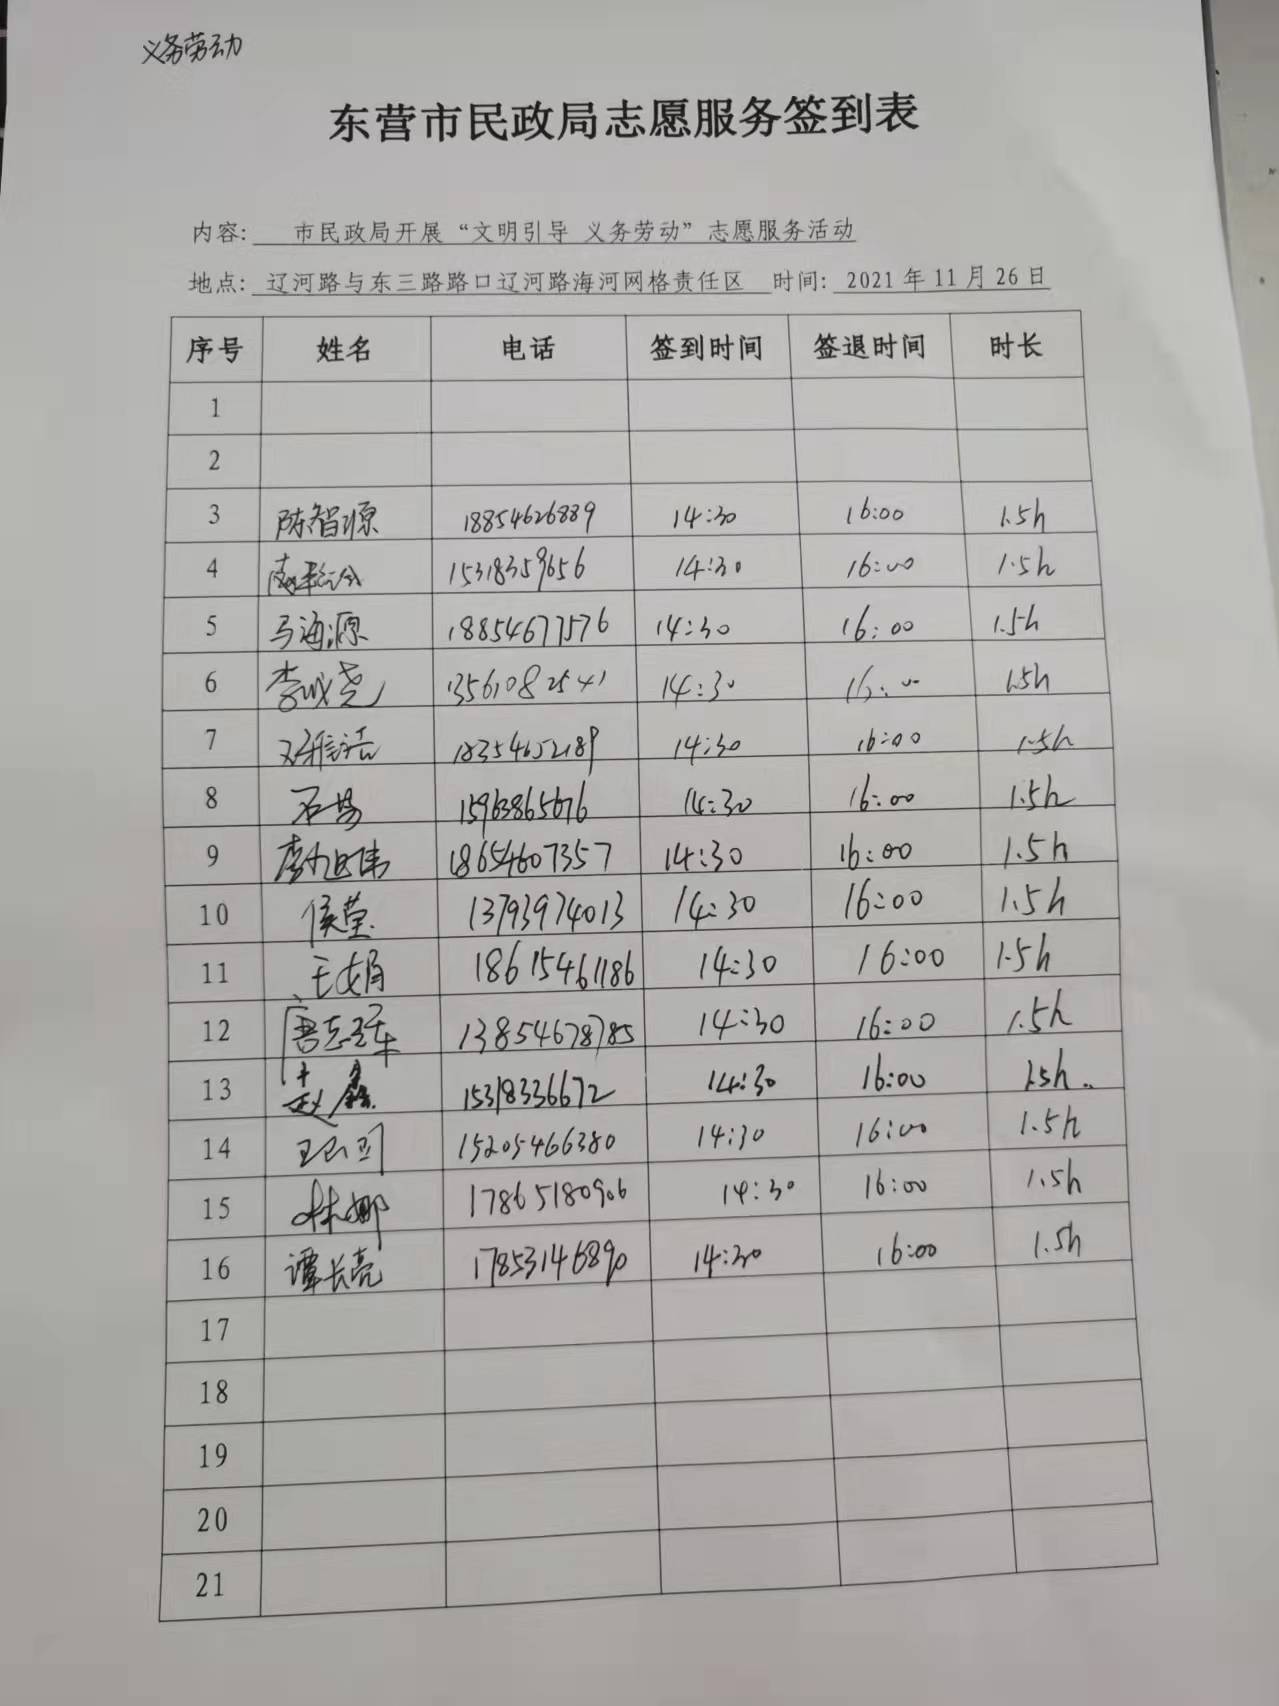 义务劳动
东营市民政局志愿服务签到表
内容: 市民政局开展“文明引导 义务劳动”志愿服务活动
地点: 辽河路与东三路路口辽河路海河网格责任区 时间: 2021年11月26日
序号 姓名 电话 签到时间 签退时间 时长
1
2
3 陈智源 18854626889 14:30 16:00 1.5h
4 15318359656 14:30 16:00 1.5h
5 马海源 18854677576 14:30 16:00 1.5h
6 李成尧 13561082541 14:30 16:00 1.5h
7 邓雅洁 18354652189 14:30 16:00 1.5h
8 石易 15963865676 14:30 16:00 1.5h
9 18654607357 14:30 16:00 1.5h
10 侯莹 13793974013 14:30 16:00 1.5h
11 王娟 18615461186 14:30 16:00 1.5h
12 唐志军 13854678785 14:30 16:00 1.5h
13 赵鑫 15318336672 14:30 16:00 1.5h
14 15205466380 14:30 16:00 1.5h
15 林娜 17865180906 14:30 16:00 1.5h
16 谭长亮 17853146890 14:30 16:00 1.5h
17
18
19
20
21